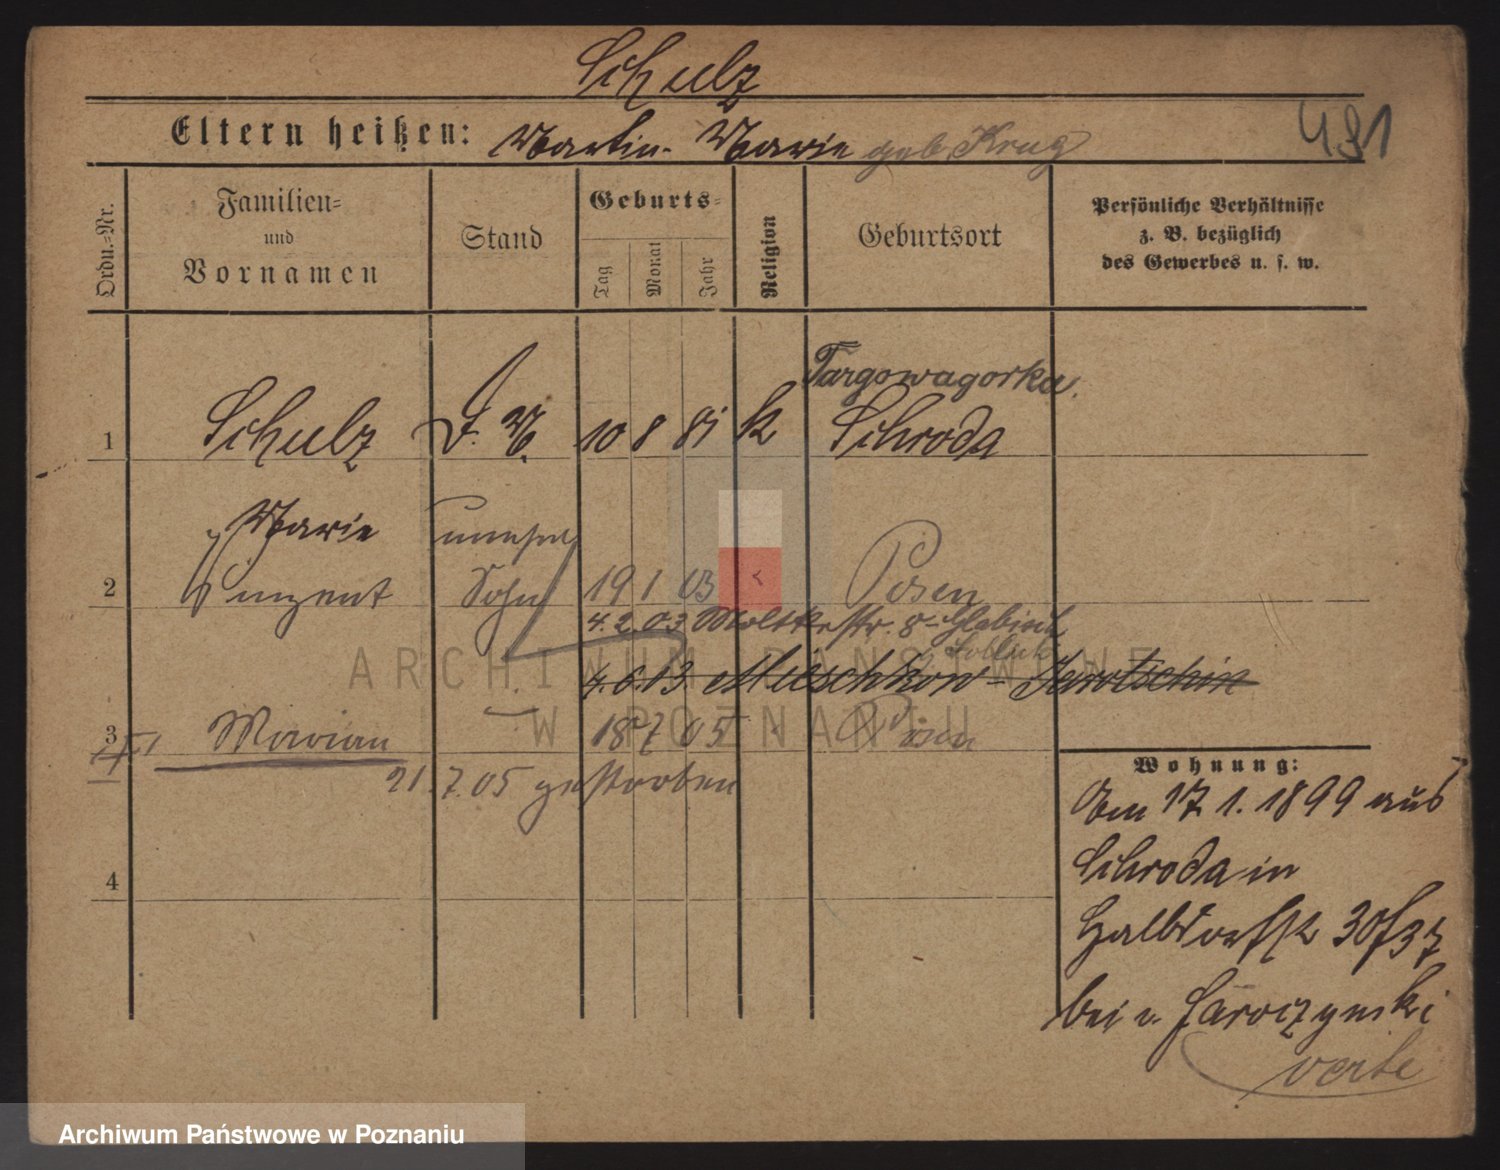 Schulz
Eltern heißen: Martin - Marie geb. Krug
491
Ordn.-Nr.
Familien- und Vornamen
Stand
Geburts-
Tag
Monat
Jahr
Religion
Geburtsort
Persönliche Verhältnisse
z. B. bezüglich
des Gewerbes u. s. w.
Targowagorka.
1 Schulz D. M. 10 8 81 K Schroda
Marie
2 Vinzent Sohn 19 1 03 Posen
4.2.03 Moltkestr. 8
4.6.03. Mieschkow - Jarotschin
ARCHIWUM PAŃSTWOWE
W POZNANIU
3 Marian 18 7 05 Posen
21.7.05 gestorben
4
Wohnung:
Am 17.1.1899 aus
Schroda in
Halbdorfstr 30/37
bei v.
verte
Archiwum Państwowe w Poznaniu